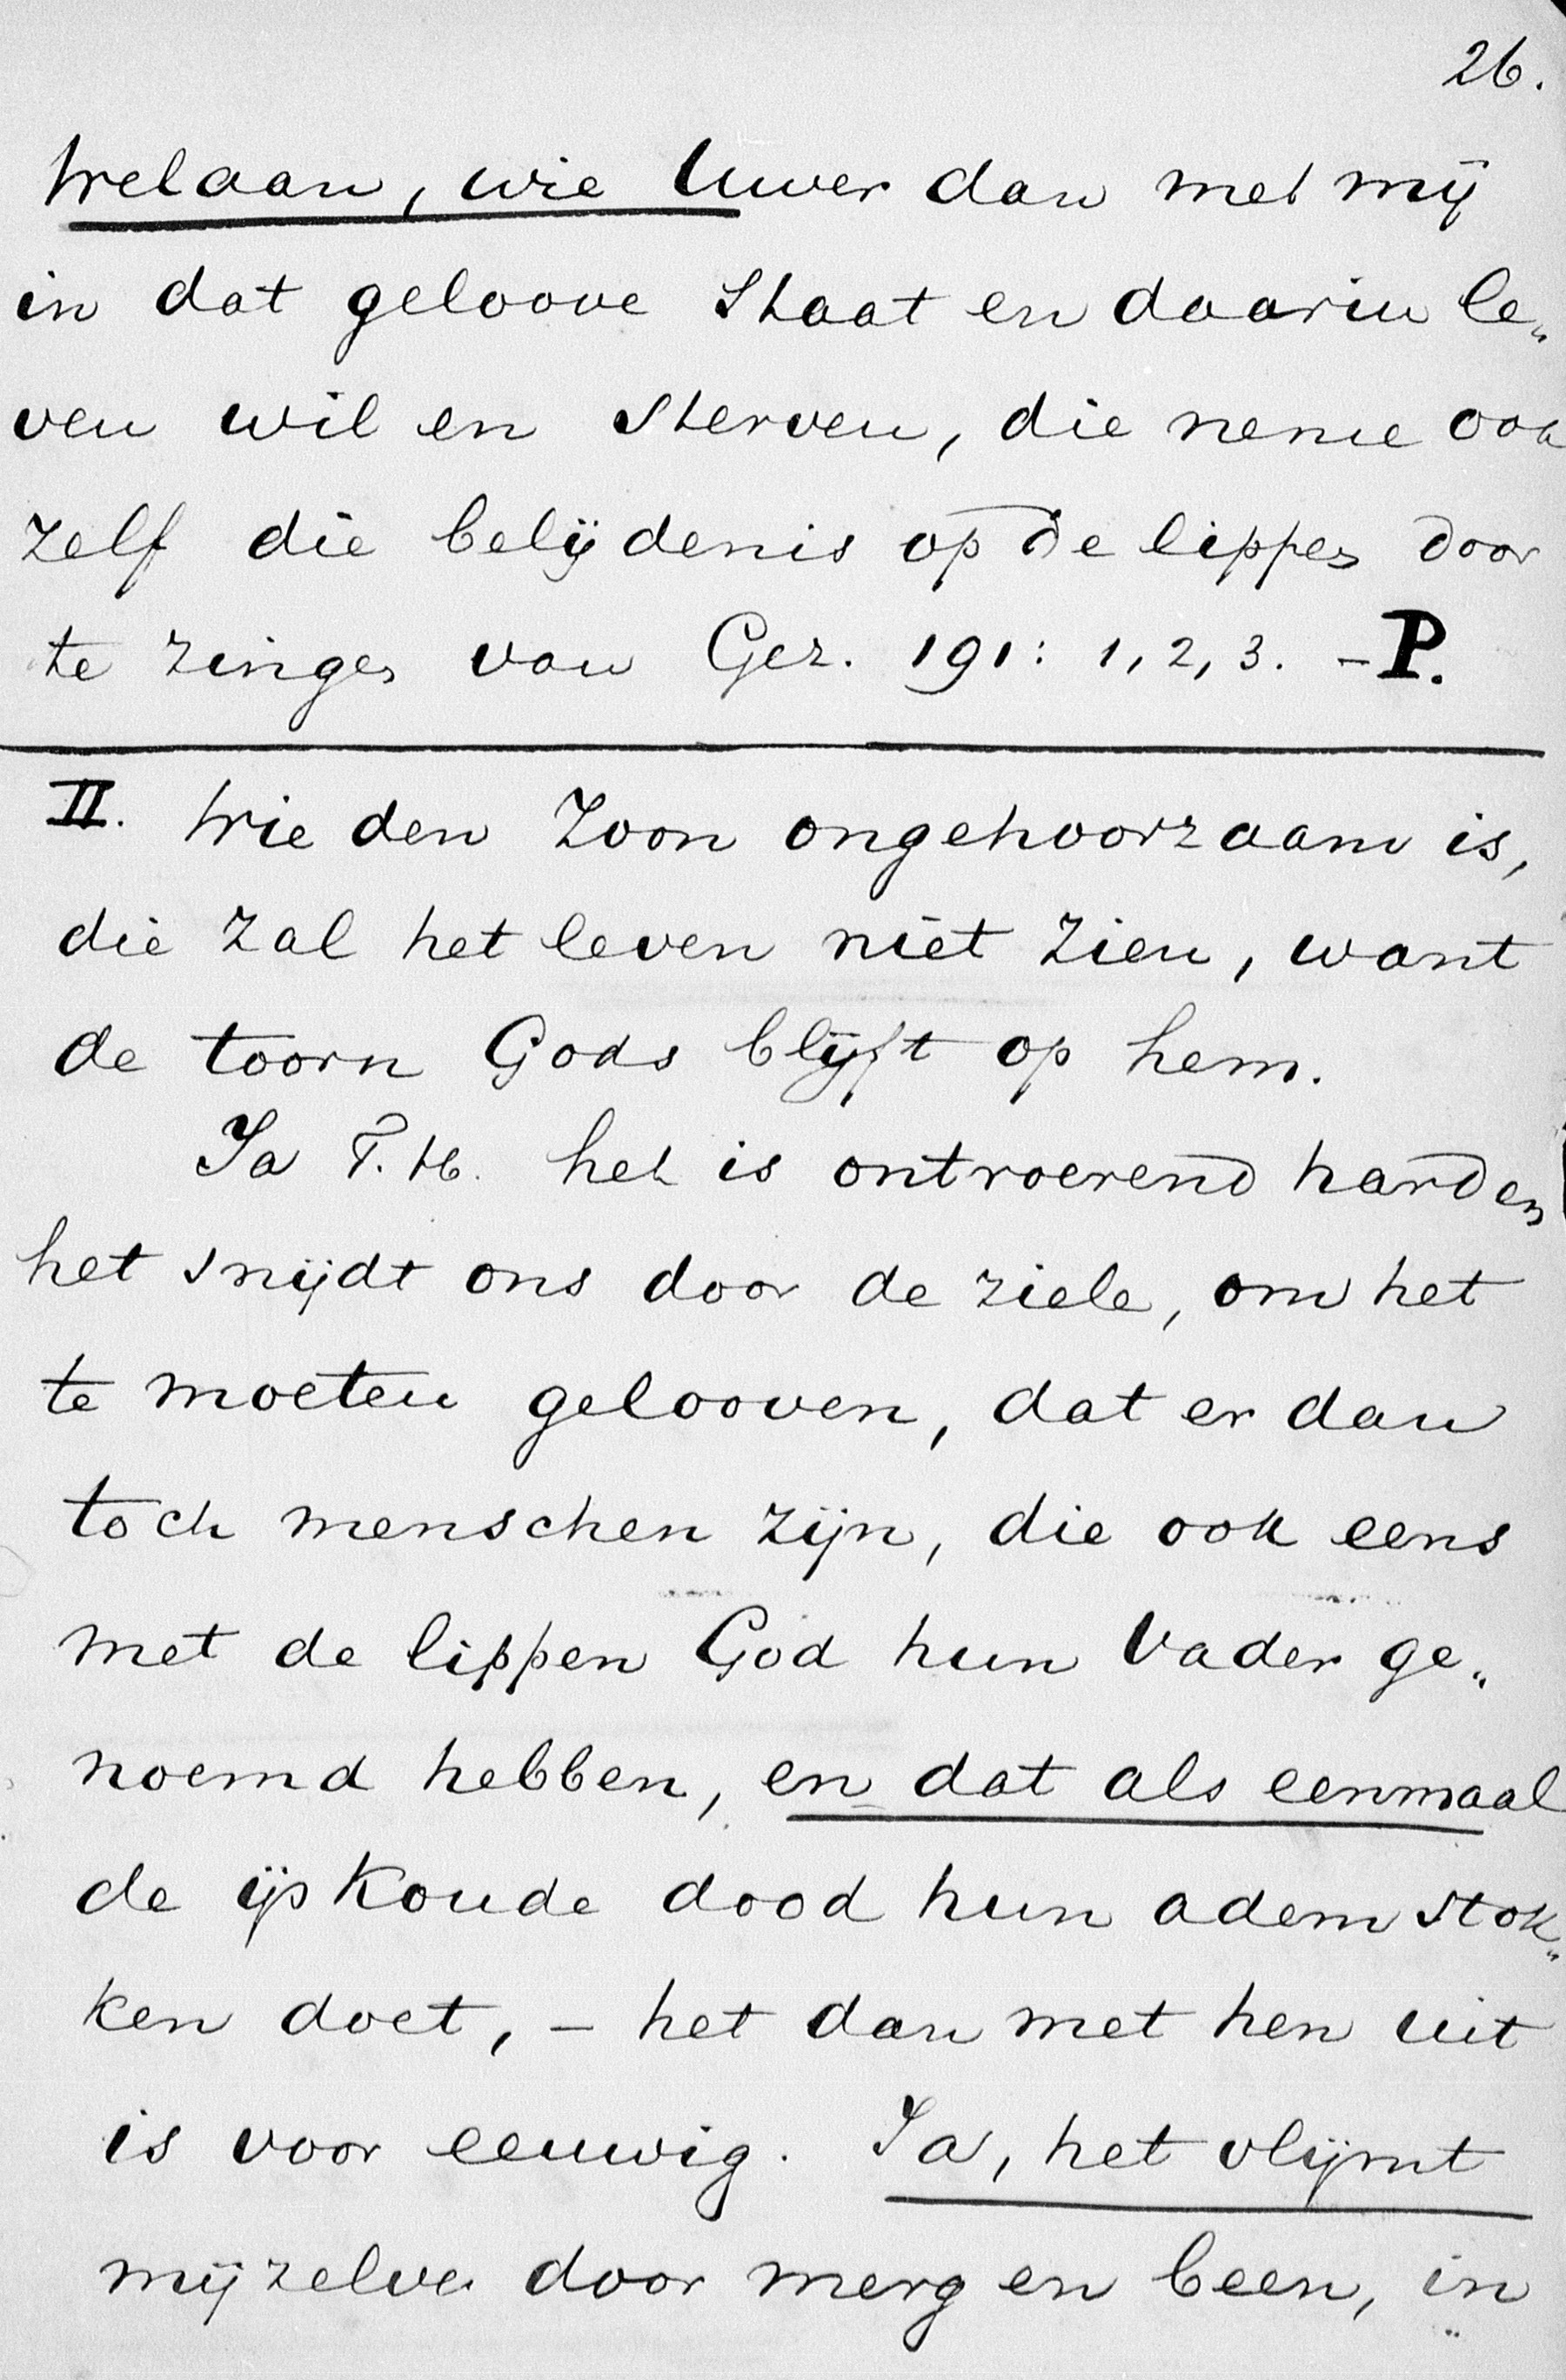 26.
Welaan, wie Uwer dan met mij
in dat geloove staat en daarin le„
ven wil en sterven, die neme ook
zelf die belijdenis op de lippen door
te zingen van Gez. 191: 1, 2, 3. - P.
II. Wie den Zoon ongehoorzaam is,
die zal het leven niet zien, want
de toorn Gods blijft op hem.
Ja T. H. het is ontroerend hard en
het snijdt ons door de ziele, om het
te moeten gelooven, dat er dan
toch menschen zijn, die ook eens
met de lippen God hun Vader ge„
noemd hebben, en dat als eenmaal
de ijskoude dood hun adem stok„
ken doet, - het dan met hen uit
is voor eeuwig. Ja, het vlijmt
mijzelve door merg en been, in